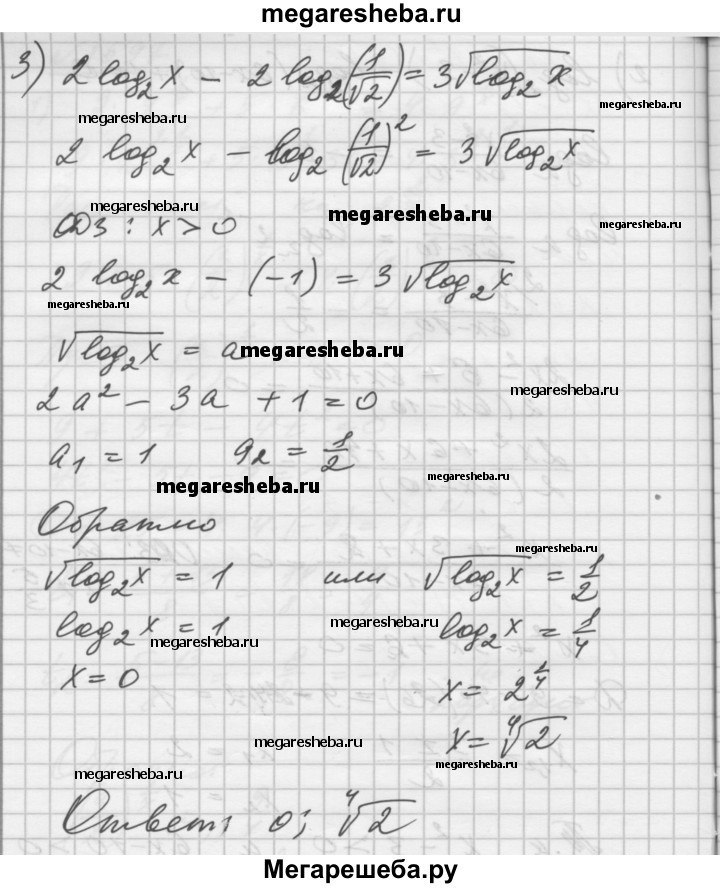 megaresheba.ru
3) 2 log₂x − 2 log₂(1/√2) = 3√(log₂x)
megaresheba.ru megaresheba.ru
2 log₂x − log₂(1/√2)² = 3√(log₂x)
megaresheba.ru megaresheba.ru
ОДЗ: x > 0
megaresheba.ru
2 log₂x − (−1) = 3√(log₂x)
megaresheba.ru
√(log₂x) = a
megaresheba.ru
2a² − 3a + 1 = 0
megaresheba.ru
a₁ = 1 a₂ = 1/2
megaresheba.ru megaresheba.ru
Обратно
megaresheba.ru
√(log₂x) = 1 или √(log₂x) = 1/2
log₂x = 1 log₂x = 1/4
megaresheba.ru megaresheba.ru
x = 0 x = 2^(1/4)
x = ⁴√2
megaresheba.ru megaresheba.ru
megaresheba.ru
Ответ: 0; ⁴√2
Мегарешеба.ру